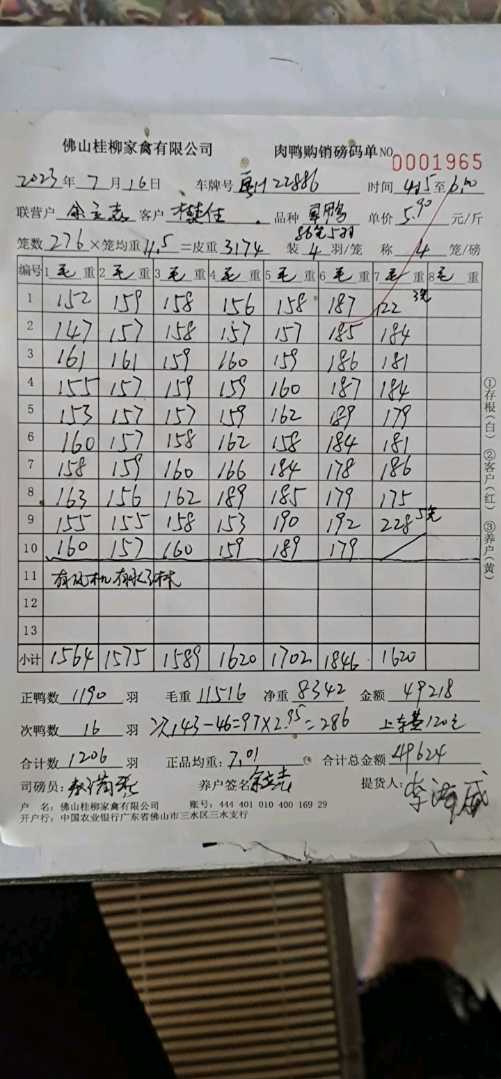 佛山桂柳家禽有限公司 肉鸭购销磅码单 NO 0001965
2023年7月16日 车牌号 22886 时间 4:15至6:00
联营户 余立志 客户 品种 草鸭 单价 5.90 元/斤
笼数 276 ×笼均重 11.5 =皮重 3174 装 4 羽/笼 称 4 笼/磅
编号 1毛重 2毛重 3毛重 4毛重 5毛重 6毛重 7毛重 8毛重
1 152 159 158 156 158 187 122 3笼
2 147 157 158 157 157 185 184
3 161 161 159 160 159 186 181
4 155 157 159 159 160 187 184
5 153 157 157 159 162 189 179
6 160 157 158 162 158 184 181
7 158 159 160 166 184 178 186
8 163 156 162 189 185 179 175
9 155 155 158 153 190 192 228 5笼
10 160 157 160 159 189 179
11 有风机 有水
12
13
小计 1564 1575 1589 1620 1702 1846 1620
正鸭数 1190 羽 毛重 11516 净重 8342 金额 49218
次鸭数 16 羽 次143-46=97×2.95=286 上车费120元
合计数 1206 羽 正品均重: 7.01 合计总金额 49624
司磅员: 养户签名 余立志 提货人: 李
户 名: 佛山桂柳家禽有限公司 账号: 444 401 010 400 169 29
开户行: 中国农业银行广东省佛山市三水区三水支行
①存根(白) ②客户(红) ③养户(黄)